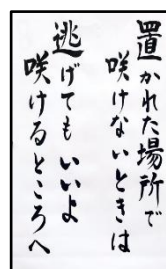 置かれた場所で
咲けないときは
逃げてもいいよ
咲けるところへ